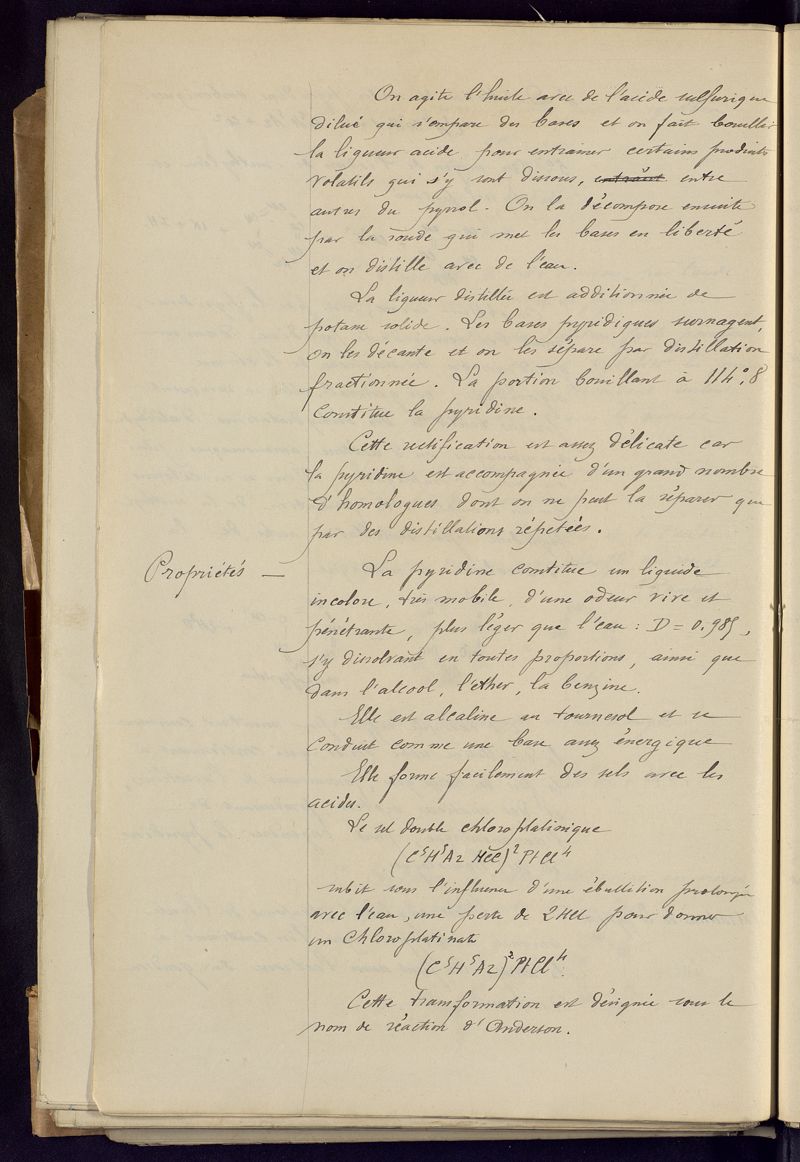 On agite l'huile avec de l'acide sulfurique
dilué qui s'empare des bases et on fait bouillir
la liqueur acide pour entrainer certains produits
volatils qui s'y sont dissous, entre
autres du pyrrol. On la décompose ensuite
par la soude qui met les bases en liberté
et on distille avec de l'eau.
La liqueur distillée est additionnée de
potasse solide. Les bases pyridiques surnagent,
on les décante et on les sépare par distillation
fractionnée. La portion bouillant à 114°,8
constitue la pyridine.
Cette rectification est assez délicate car
la pyridine est accompagnée d'un grand nombre
d'homologues dont on ne peut la séparer que
par des distillations répétées.
Propriétés — La pyridine constitue un liquide
incolore, très mobile, d'une odeur vive et
pénétrante, plus léger que l'eau : D = 0.985,
s'y dissolvant en toutes proportions, ainsi que
dans l'alcool, l'éther, la benzine.
Elle est alcaline au tournesol et se
conduit comme une base assez énergique
Elle forme facilement des sels avec les
acides.
Le sel double chloroplatinique
(C⁵H⁵Az HCl)² PtCl⁴
subit sous l'influence d'une ébullition prolongée
avec l'eau, une perte de 2HCl pour donner
un chloroplatinate
(C⁵H⁵Az)² PtCl⁴.
Cette transformation est désignée sous le
nom de réaction d'Anderson.